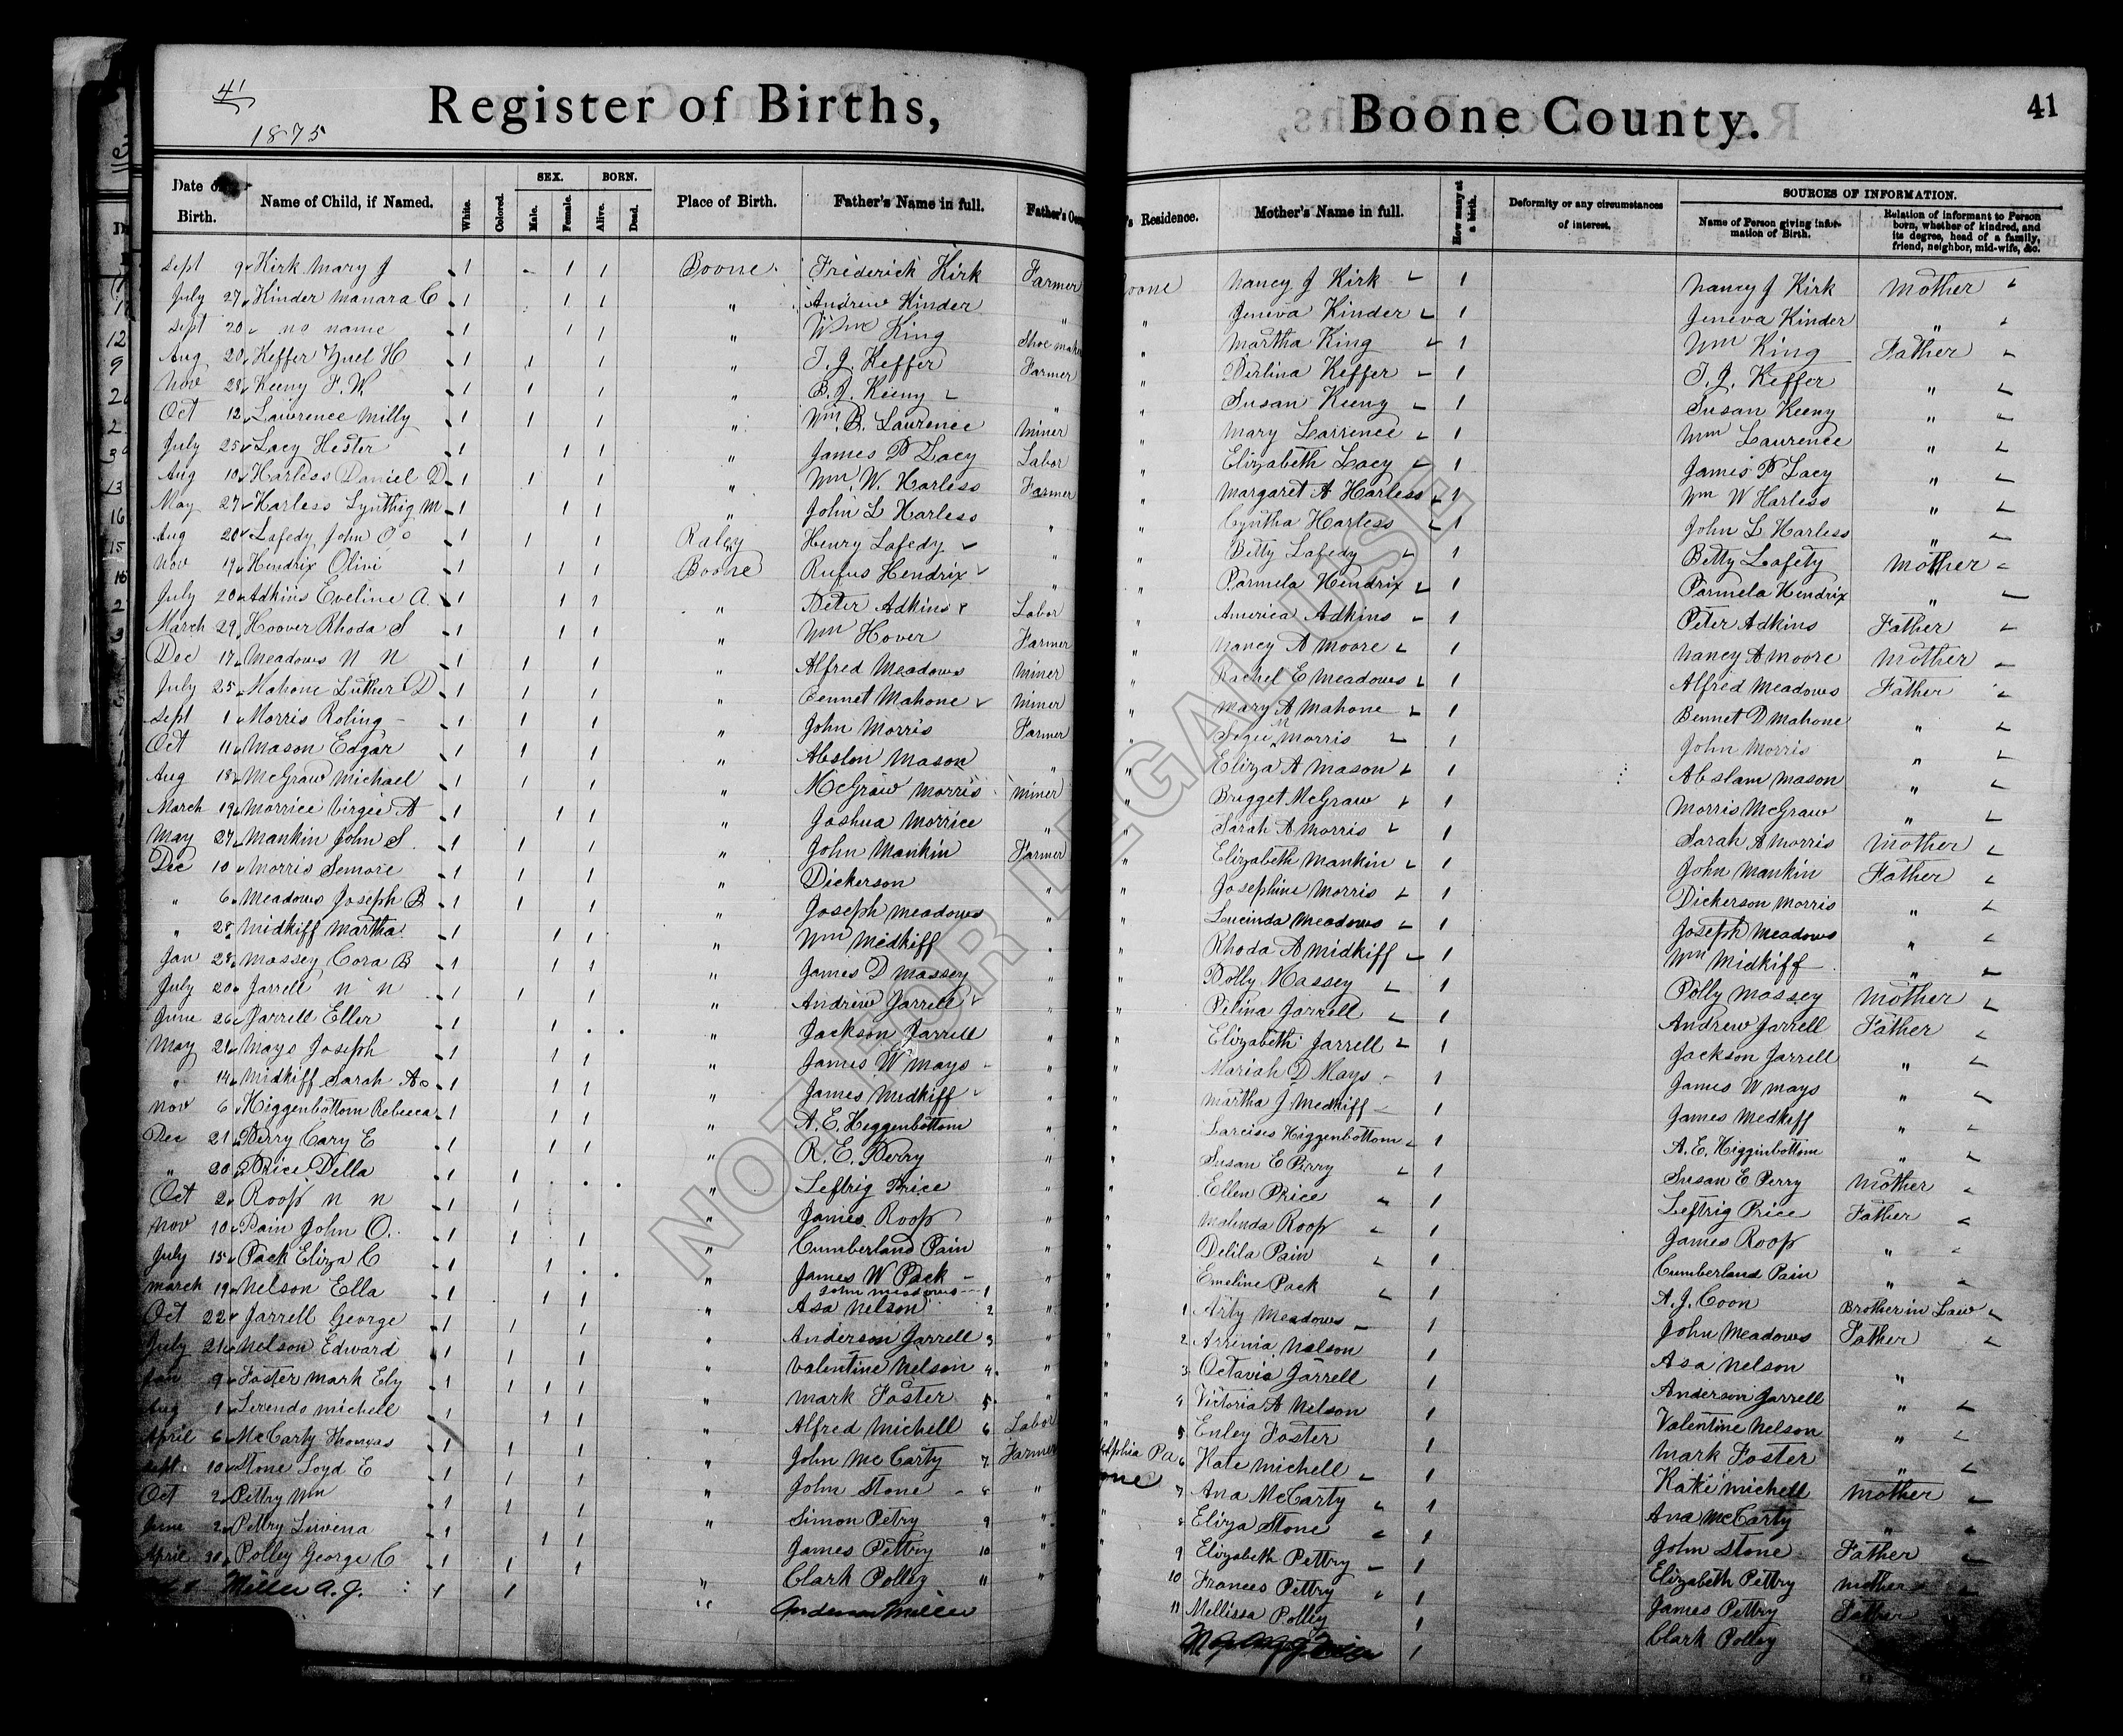 41
1875
Register of Births,
Boone County.
41
Date of Birth. Name of Child, if Named. White. Colored. SEX. Male. Female. BORN. Alive. Dead. Place of Birth. Father's Name in full. Father's Residence. Mother's Name in full. How many at a birth. Deformity or any circumstances of interest. SOURCES OF INFORMATION. Name of Person giving information of Birth. Relation of informant to Person born, whether of kindred, and its degree, head of a family, friend, neighbor, mid-wife, &c.
Sept 9 Kirk Mary J 1 1 1 Boone Frederick Kirk Farmer Boone Nancy J Kirk 1 Nancy J Kirk Mother
July 27 Kinder Manara C 1 1 1 " Andrew Kinder " " Geneva Kinder 1 Geneva Kinder "
Sept 20 no name 1 1 1 " Wm King Shoe maker " Martha King 1 Wm King Father
Aug 20 Keffer H 1 1 1 " T. J. Keffer Farmer " Keffer 1 T. J. Keffer "
Nov 28 Keeny F. W. 1 1 1 " B. J. Keeny " " Susan Keeny 1 Susan Keeny "
Oct 12 Lawrence Milly 1 1 1 " Wm B. Laurence Miner " Mary Larrence 1 Wm Laurence "
July 25 Lacy Hester 1 1 1 " James P Lacy Labor " Elizabeth Lacy 1 James P Lacy "
Aug 10 Harless Daniel D 1 1 1 " Wm. W. Harless Farmer " Margaret A Harless 1 Wm W Harless "
May 27 Harless M 1 1 1 " John L Harless " " Cyntha Harless 1 John L Harless "
Aug 20 Lafedy John O 1 1 1 Raley Henry Lafedy " " Betty Lafedy 1 Betty Lafety Mother
Nov 19 Hendrix Olivi 1 1 1 Boone Rufus Hendrix " " Parmela Hendrix 1 Parmela Hendrix "
July 20 Adkins Eveline A. 1 1 1 " Peter Adkins Labor " America Adkins 1 Peter Adkins Father
March 29 Hoover Rhoda S 1 1 1 " Wm Hover Farmer " Nancy A Moore 1 Nancy A Moore Mother
Dec 17 Meadows N N 1 1 1 " Alfred Meadows Miner " Rachel E Meadows 1 Alfred Meadows Father
July 25 Mahone Luther D 1 1 1 " Bennet Mahone Miner " Mary A Mahone 1 Bennet D Mahone "
Sept 1 Morris Roling 1 1 1 " John Morris Farmer " Morris 1 John Morris "
Oct 11 Mason Edgar 1 1 1 " Abslon Mason " " Eliza A Mason 1 Abslam Mason "
Aug 18 McGraw Michael 1 1 1 " McGraw Morris Miner " Brigget McGraw 1 Morris McGraw "
March 19 Morrice Virgie A 1 1 1 " Joshua Morrice " " Sarah A Morris 1 Sarah A Morris Mother
May 27 Mankin John S. 1 1 1 " John Mankin Farmer " Elizabeth Mankin 1 John Mankin Father
Dec 10 Morris Semore 1 1 1 " Dickerson " " Josephine Morris 1 Dickerson Morris "
" 6 Meadows Joseph B 1 1 1 " Joseph Meadows " " Lucinda Meadows 1 Joseph Meadows "
" 28 Midkiff Martha 1 1 1 " Wm Midkiff " " Rhoda A Midkiff 1 Wm Midkiff "
Jan 28 Massey Cora B 1 1 1 " James D Massey " " Polly Massey 1 Polly Massey Mother
July 20 Jarrell N N 1 1 1 " Andrew Jarrell " " Pelina Jarrell 1 Andrew Jarrell Father
June 26 Jarrell Eller 1 1 " Jackson Jarrell " " Elizabeth Jarrell 1 Jackson Jarrell "
May 21 Mays Joseph 1 1 1 " James W Mays " " Mariah D Mays 1 James W Mays "
" 14 Midkiff Sarah A 1 1 1 " James Midkiff " " Martha J Medkiff 1 James Medkiff "
Nov 6 Higgenbottom Rebecca 1 1 1 " A. E. Heggenbottom " " Higgenbottom 1 A. E. Higginbottom "
Dec 21 Perry Cary E 1 1 1 " R. E. Perry " " Susan E Perry 1 Susan E Perry Mother
" 20 Price Della 1 1 " Leftrig Price " " Ellen Price 1 Leftrig Price Father
Oct 2 Roop N N 1 1 " James Roop " " Malinda Roop 1 James Roop "
Nov 10 Pain John O. 1 1 1 " Cumberland Pain " " Delila Pain 1 Cumberland Pain "
July 15 Pack Eliza C 1 1 " James W Pack " " Emeline Pack 1 A. J. Coon Brother in Law
John Meadows 1
March 19 Nelson Ella 1 1 1 " Asa Nelson 2 " " 1 Arty Meadows 1 John Meadows Father
Oct 22 Jarrell George 1 1 1 " Anderson Jarrell 3 " " 2 Nelson 1 Asa Nelson "
July 21 Nelson Edward 1 1 1 " Valentine Nelson 4 " " 3 Octavia Jarrell 1 Anderson Jarrell "
Jan 9 Foster Mark Ely 1 1 1 1 " Mark Foster 5 " " 4 Victoria A Nelson 1 Valentine Nelson "
Aug 1 Michell 1 1 1 " Alfred Michell 6 Labor " 5 Enley Foster 1 Mark Foster "
April 6 McCarty Thomas 1 1 1 " John McCarty 7 Farmer Pa 6 Kate Michell 1 Kate Michell Mother
Sept 10 Stone Loyd E 1 1 1 " John Stone 8 " 7 Ana McCarty 1 Ana McCarty "
Oct 2 Pettry Wm 1 1 1 " Simon Petry 9 " " 8 Eliza Stone 1 John Stone Father
June 2 Pettry 1 1 1 " James Pettry 10 " " 9 Elizabeth Pettry 1 Elizabeth Pettry Mother
April 30 Polley George C 1 1 1 " Clark Polley 11 " " 10 Frances Pettry 1 James Pettry Father
Miller A. J. 1 1 " Anderson Miller 11 Mellissa Polley 1 Clark Polley
NOT FOR LEGAL USE